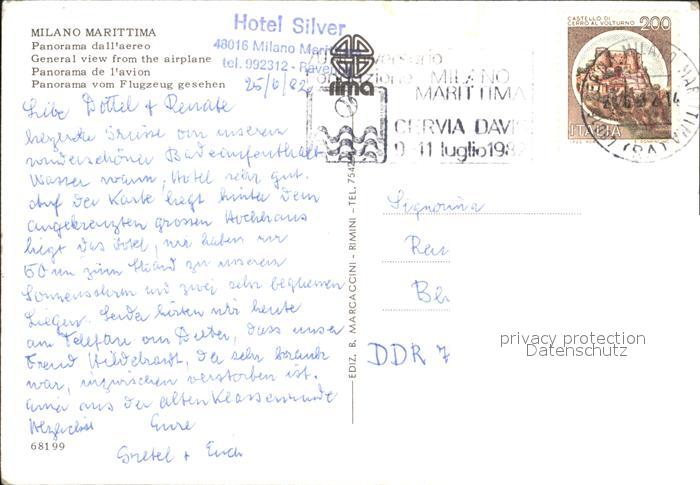 MILANO MARITTIMA
Panorama dall'aereo
General view from the airplane
Panorama de l'avion
Panorama vom Flugzeug gesehen
Hotel Silver
48016 Milano Marittima
tel. 992312 - Raven
25/6/82
rima
MILANO
MARITTIMA
CERVIA DAVIS
9-11 luglio 1982
CASTELLO DI
CERRO AL VOLTURNO
200
ITALIA
Liebe Dottel + Renate
herzliche Grüsse von unserem
wunderschönen Badeaufenthalt
Wasser warm, Hotel sehr gut.
Auf der Karte liegt hinter dem
angekreuzten grossen Hochhaus
liegt das Hotel, wir haben nur
50 m zum Strand zu unserem
Sonnenschirm und zwei sehr bequemen
Liegen. Leider hörten wir heute
am Telefon von Dieter, dass unser
Freund Hildebrandt, der sehr krank
war, inzwischen verstorben ist.
aus der alten Klassenrunde
Herzlichst Eure
Gretel + Erich
68199
EDIZ. B. MARCACCINI - RIMINI - TEL. 7542
Signorina
Ren
DDR 7
privacy protection
Datenschutz